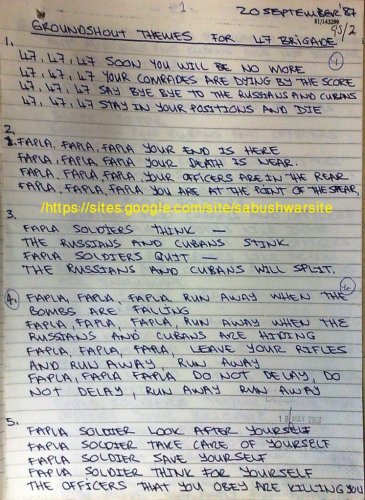 - 1 -
20 SEPTEMBER '87
81/143299
95/2
GROUNDSHOUT THEMES FOR 47 BRIGADE
1.
47, 47, 47 SOON YOU WILL BE NO MORE
47, 47, 47 YOUR COMRADES ARE DYING BY THE SCORE
47, 47, 47 SAY BYE BYE TO THE RUSSIANS AND CUBANS
47, 47, 47 STAY IN YOUR POSITIONS AND DIE
2.
FAPLA, FAPLA, FAPLA YOUR END IS HERE
FAPLA, FAPLA, FAPLA YOUR DEATH IS NEAR.
FAPLA, FAPLA, FAPLA YOUR OFFICERS ARE IN THE REAR
FAPLA, FAPLA, FAPLA YOU ARE AT THE POINT OF THE SPEAR
/https://sites.google.com/site/sabushwarsite
3.
FAPLA SOLDIERS THINK —
THE RUSSIANS AND CUBANS STINK
FAPLA SOLDIERS QUIT —
THE RUSSIANS AND CUBANS WILL SPLIT.
4. FAPLA, FAPLA, FAPLA RUN AWAY WHEN THE
BOMBS ARE FALLING
FAPLA, FAPLA, FAPLA, RUN AWAY WHEN THE
RUSSIANS AND CUBANS ARE HIDING
FAPLA, FAPLA, FAPLA, LEAVE YOUR RIFLES
AND RUN AWAY, RUN AWAY
FAPLA, FAPLA FAPLA DO NOT DELAY, DO
NOT DELAY, RUN AWAY RUN AWAY
5.
FAPLA SOLDIER LOOK AFTER YOURSELF
FAPLA SOLDIER TAKE CARE OF YOURSELF
FAPLA SOLDIER SAVE YOURSELF
FAPLA SOLDIER THINK FOR YOURSELF
THE OFFICERS THAT YOU OBEY ARE KILLING YOU